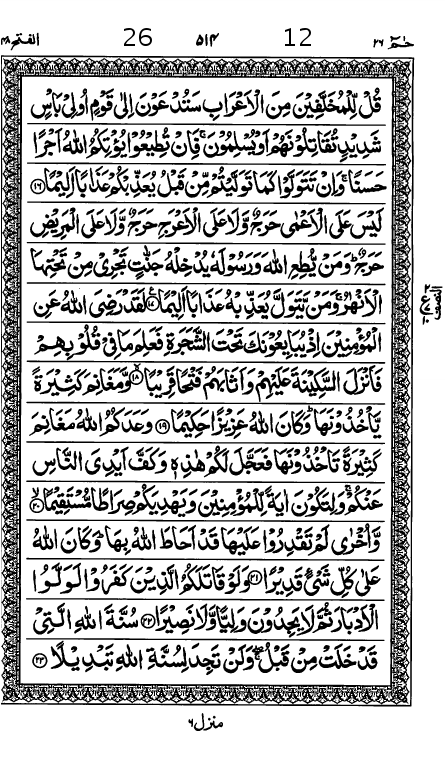 الفتح ٤٨ 26 ٥١٤ 12 حٰمٓ ٢٦
قُلْ لِّلْمُخَلَّفِيْنَ مِنَ الْاَعْرَابِ سَتُدْعَوْنَ اِلٰى قَوْمٍ اُولِيْ بَاْسٍ
شَدِيْدٍ تُقَاتِلُوْنَهُمْ اَوْ يُسْلِمُوْنَ ۚ فَاِنْ تُطِيْعُوْا يُؤْتِكُمُ اللّٰهُ اَجْرًا
حَسَنًا ۚ وَاِنْ تَتَوَلَّوْا كَمَا تَوَلَّيْتُمْ مِّنْ قَبْلُ يُعَذِّبْكُمْ عَذَابًا اَلِيْمًا ﴿١٦﴾
لَيْسَ عَلَى الْاَعْمٰى حَرَجٌ وَّلَا عَلَى الْاَعْرَجِ حَرَجٌ وَّلَا عَلَى الْمَرِيْضِ
حَرَجٌ ؕ وَمَنْ يُّطِعِ اللّٰهَ وَرَسُوْلَهٗ يُدْخِلْهُ جَنّٰتٍ تَجْرِيْ مِنْ تَحْتِهَا
الْاَنْهٰرُ ۚ وَمَنْ يَّتَوَلَّ يُعَذِّبْهُ عَذَابًا اَلِيْمًا ﴿١٧﴾ لَقَدْ رَضِيَ اللّٰهُ عَنِ
الْمُؤْمِنِيْنَ اِذْ يُبَايِعُوْنَكَ تَحْتَ الشَّجَرَةِ فَعَلِمَ مَا فِيْ قُلُوْبِهِمْ
فَاَنْزَلَ السَّكِيْنَةَ عَلَيْهِمْ وَاَثَابَهُمْ فَتْحًا قَرِيْبًا ﴿١٨﴾ وَّمَغَانِمَ كَثِيْرَةً
يَّاْخُذُوْنَهَا ؕ وَكَانَ اللّٰهُ عَزِيْزًا حَكِيْمًا ﴿١٩﴾ وَعَدَكُمُ اللّٰهُ مَغَانِمَ
كَثِيْرَةً تَاْخُذُوْنَهَا فَعَجَّلَ لَكُمْ هٰذِهٖ وَكَفَّ اَيْدِيَ النَّاسِ
عَنْكُمْ ۚ وَلِتَكُوْنَ اٰيَةً لِّلْمُؤْمِنِيْنَ وَيَهْدِيَكُمْ صِرَاطًا مُّسْتَقِيْمًا ﴿٢٠﴾
وَّاُخْرٰى لَمْ تَقْدِرُوْا عَلَيْهَا قَدْ اَحَاطَ اللّٰهُ بِهَا ؕ وَكَانَ اللّٰهُ
عَلٰى كُلِّ شَيْءٍ قَدِيْرًا ﴿٢١﴾ وَلَوْ قَاتَلَكُمُ الَّذِيْنَ كَفَرُوْا لَوَلَّوُا
الْاَدْبَارَ ثُمَّ لَا يَجِدُوْنَ وَلِيًّا وَّلَا نَصِيْرًا ﴿٢٢﴾ سُنَّةَ اللّٰهِ الَّتِيْ
قَدْ خَلَتْ مِنْ قَبْلُ ۖ وَلَنْ تَجِدَ لِسُنَّةِ اللّٰهِ تَبْدِيْلًا ﴿٢٣﴾
منزل ٦